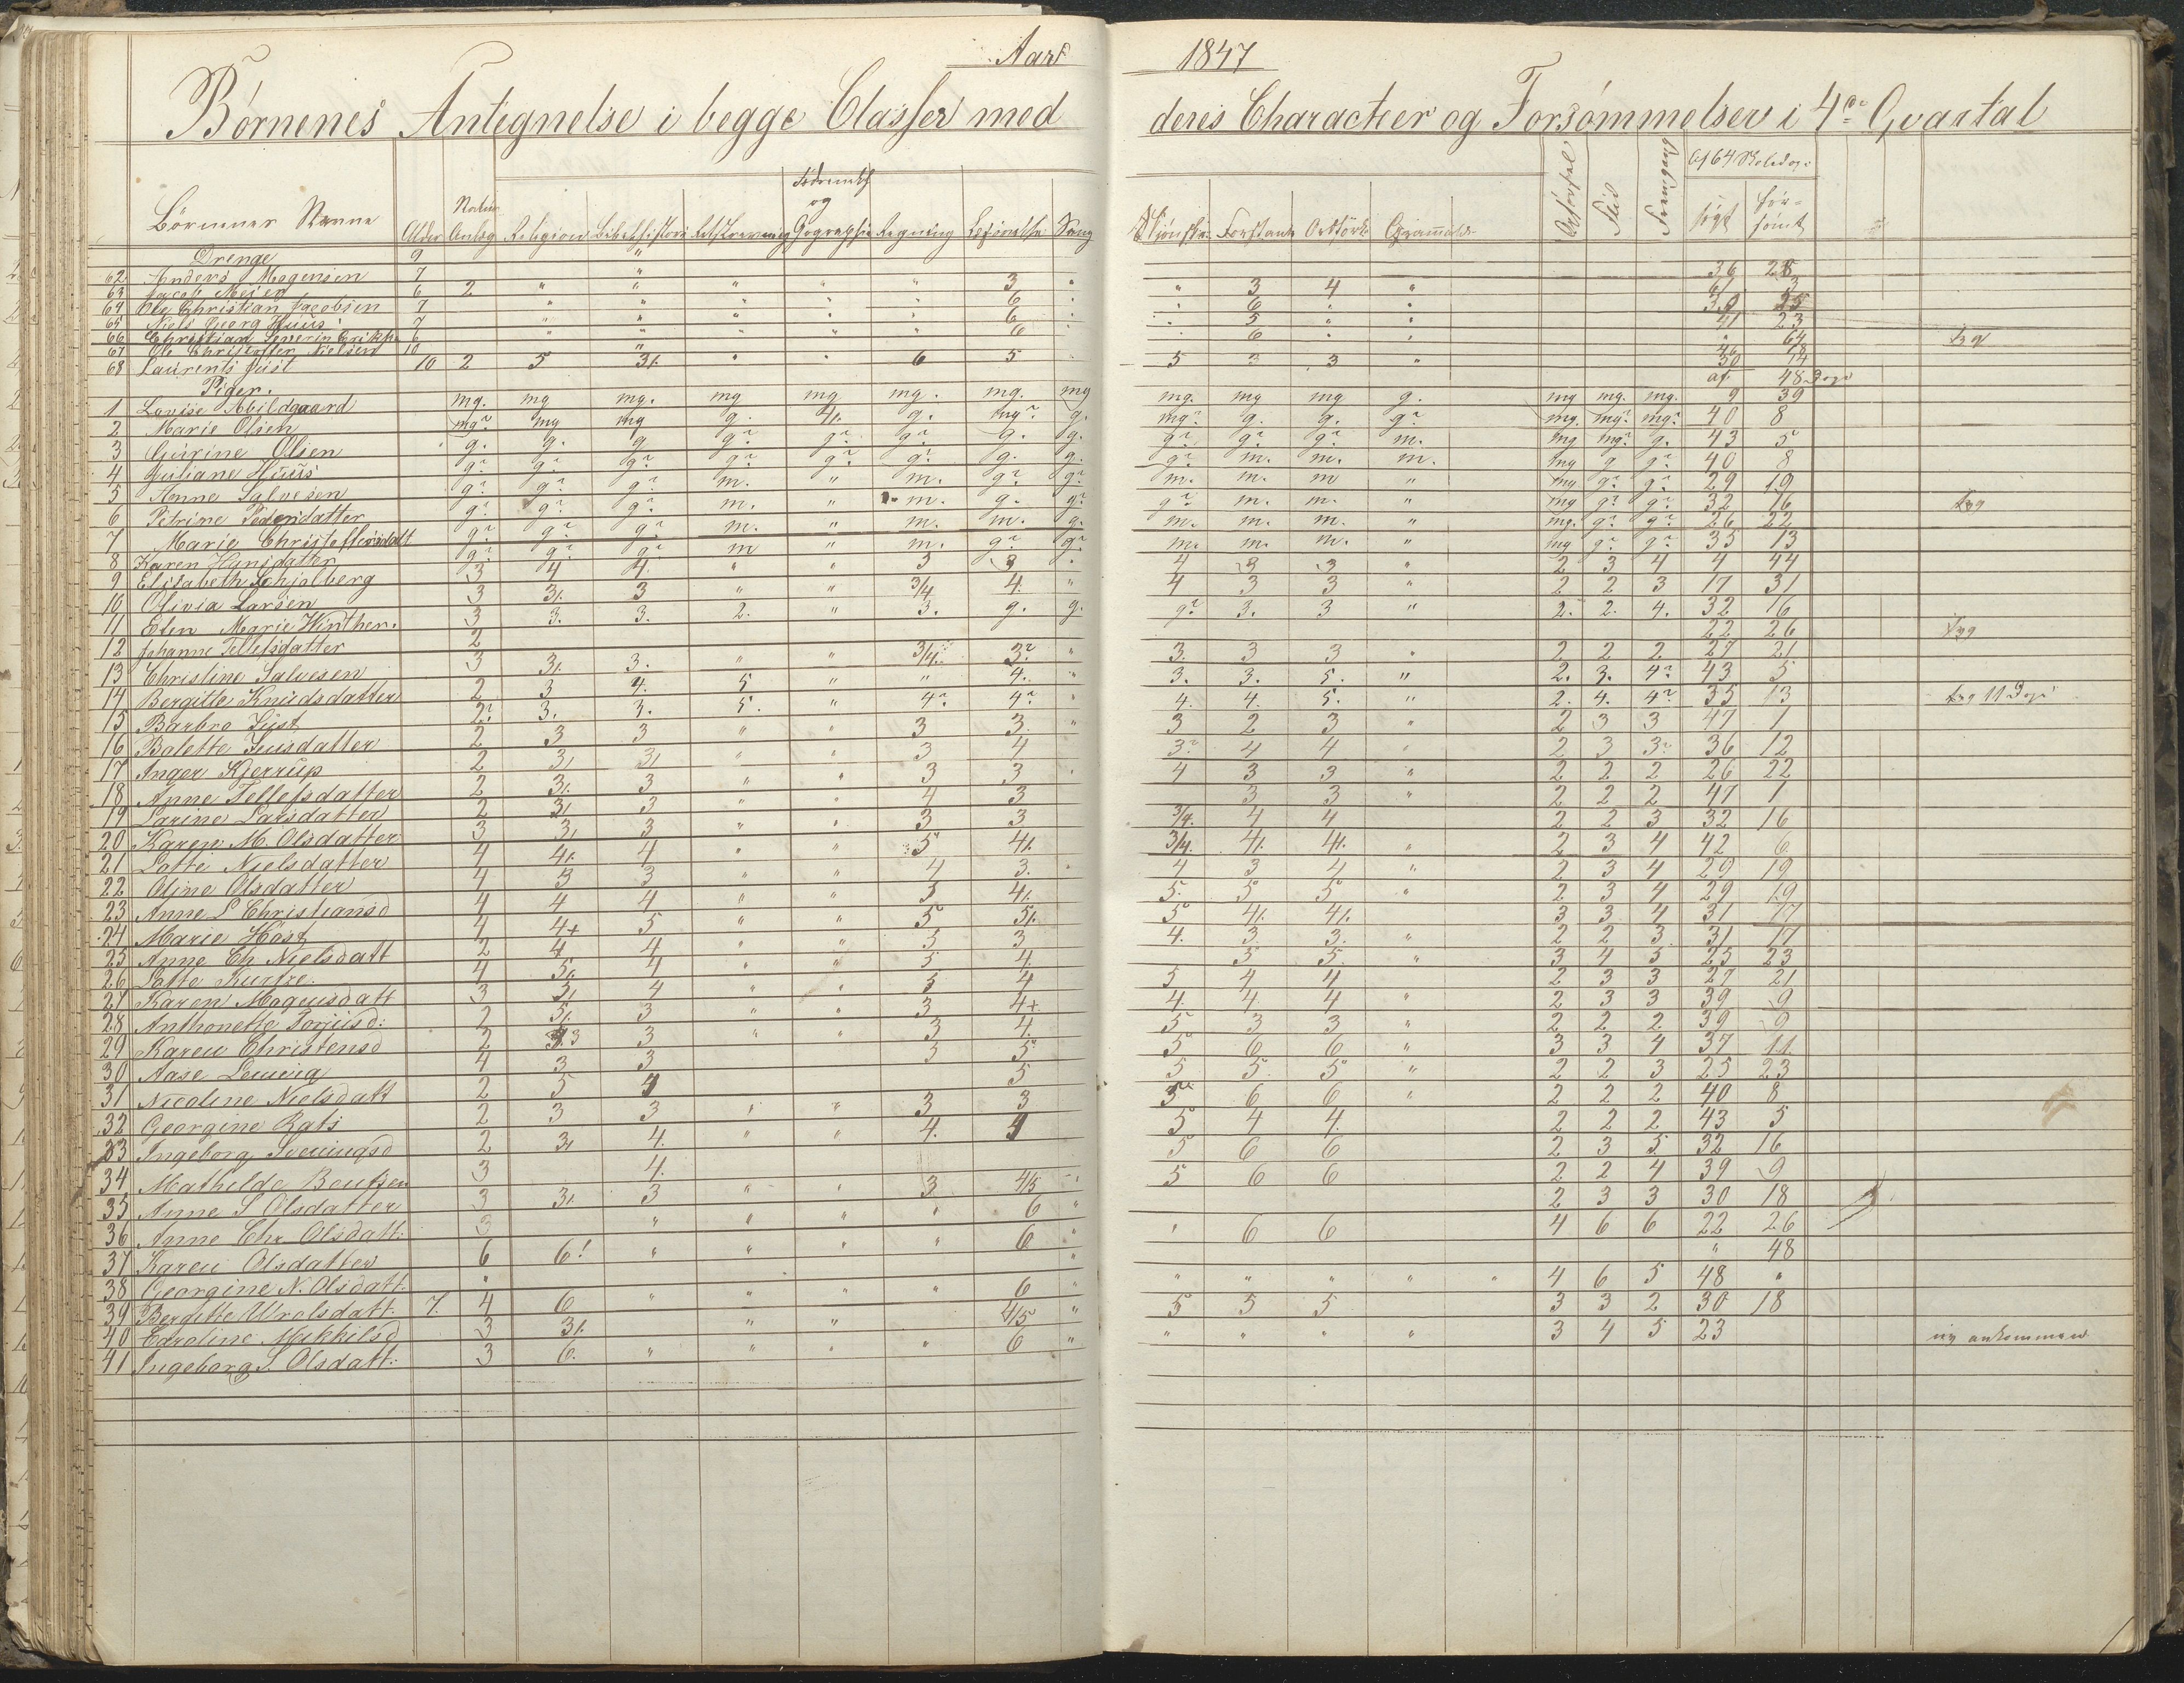 Aar 1847
Børnenes Antegnelse i begge Classer med deres Characteer og Forsømmelser i 4de Qvartal
Af 64 Skoledage
Børnenes Navne Alder Natur Anlæg Religion Bibelhistorie Retskrivning Fædrenelandsh og Geographie Regning Sang Skjønskr. Forstand Grammatik Opførsel Flid Fremgang søgt forsømt
Drenge 9 "
62 Anders Mogensen 7 " 36 28
63 Jacob Meier 6 2 " " " " " 3 " " 3 4 " 61 3
64 Ole Christian Jacobsen 7 " " " " " 6 " " 6 " "
65 Niels Georg Huus 7 " " " " " 6 " " 5 " " 41 23
66 Christian Severin Eriks. 6 " " " " " 6 " " 6 " " " 64 syg
67 Ole Christoffer Nielsen 10 " 46 18
68 Laurents Just 10 2 5 3/. " " 6 5 5 3 3 " 50 14
Piger. af 48 Dage
1 Lovise Abildgaard mg. mg mg. mg mg mg. mg. mg mg. mg mg g. mg mg. mg. 9 39
2 Marie Olsen mg? mg mg g. 4/. g. mg? g. mg? g. g. g? mg. mg? mg? 40 8
3 Gurine Olsen g. g. g g? g? g? g. g. g? g? g? m. mg mg? g. 43 5
4 Juliane Huus g? g? g? g? g? g? g. g. g? m. m. m. mg g g? 40 8
5 Anne Salvesen g? g? g? m. " m. g? g? m. m. m " mg g? g? 29 19
6 Petrine Pedersdatter g? g? g? m. " m. g. g? g? m. m. " mg g? g? 32 16 syg
7 Marie Christoffersdatt g? g? g? m. " m. m. g. m. m. m. " mg. g? g? 26 22
8 Karen Hansdatter g? g? g? m " m. g? g? m. m. m. " mg g? g? 35 13
9 Elisabeth Schjølberg 3 4 4. " " 5 3 " 4 3 3 " 2 3 4 4 44
10 Olivia Larsen 3 3/. 3 " " 3/4 4. " 4 3 3 " 2 2 3 17 31
11 Elen Marie Winther. 3 3. 3. 2. " 3. g. g. g? 3. 3 " 2. 2. 4. 32 16
12 Johanne Tellefsdatter 2 22 26 syg
13 Christine Salvesen 3 3/. 3. " " 3/4. 3? " 3. 3 3 " 2 2 2 27 21
14 Bergitte Knudsdatter 2 3 4. 5 " " 4. " 3. 3. 5. " 2. 3. 4? 43 5
15 Barbro Just 2? 3. 3. 5. " 4? 4? " 4. 4. 5. " 2. 4. 4? 35 13 syg 11 Dage
16 Balette Juusdatter 2 3 3 " " 3 3. " 3 2 3 " 2 3 3 47 1
17 Inger Kjerrup 2 3/ 3/ " " 3 4 3? 4 4 " 2 3 3? 36 12
18 Anne Tellefsdatter 2 3/. 3 " " 3 3 " 4 3 3 " 2 2 2 26 22
19 Larine Larsdatter 2 3/ 3 " " 4 3 3 3 " 2 2 2 47 1
20 Karen M. Olsdatter 3 3/ 3 " " 3 3 3/4. 4 4 2 2 3 32 16
21 Lotte Nielsdatter 4 4/. 4 " " 5 4/. 3/4. 4/. 4/. " 2 3 4 42 6
22 Oline Olsdatter 4 3 3 " " 4 3. " 4 3 4 " 2 3 4 29 19
23 Anne L Christiansd 4 4 4 " " 5 4/. 5. 5 5 " 2 3 4 29 19
24 Marie Høst 4 4+ 5 " " 5 5/. 5 4/. 4/. 3 3 4 31 17
25 Anne Ch Nielsdatt 2 4 4 " " 5 3 4. 3. 3. " 2 2 3 31 17
26 Lotte Kurtze. 4 5/. 4 " " 5 4. 5 5. " 3 4 5 25 23
27 Karen Mogensdatt 3 3/ 4 " " 5 4 5 4 4 2 3 3 27 21
28 Anthonette Torjusd: 2 5/. 3 " " 3 4+ 4. 4. 4 " 2 3 3 39 9
29 Karen Christensd 2 3 3 " " 3 4. 5 3 3 " 2 2 2 39 9
30 Aase Lewing 4 3 3 3 5 5 6 6 " 3 3 4 37 11
31 Nicoline Nielsdatt 2 5 4 5 5 5. 5 " 2 2 3 25 23
32 Georgine Rats 2 3 3 " " 3 3 5 6 6 " 2 2 2 40 8
33 Ingeborg Svenningsd 2 3/ 4. " " 4. 4 5 4 4. 2 2 2 43 5
34 Mathilde Bentsen 3 4. 5 6 6 2 3 5 32 16
35 Anne S Olsdatter 3 3/. 3 " " 3 4/5 5 6 6 2 2 4 39 9
36 Anne Chr Olsdatt: 3 " " " " 6 " 2 3 3 30 18
37 Karen Olsdatter 6 6! " " " " 6 " " 6 6 4 6 6 22 26
38 Georgine N. Olsdatt: " " " 48
39 Bergitte Urolsdatt: 7. 4 6 " " " " 6 " " " " " " 4 6 5 48 "
40 Caroline Mikkilsd 3 3/. " " 4/5 " 5 5 5 3 3 2 30 18
41 Ingeborg S. Olsdatt: 3 6. " " " " 6 " " " " " 3 4 5 23 ny ankommen